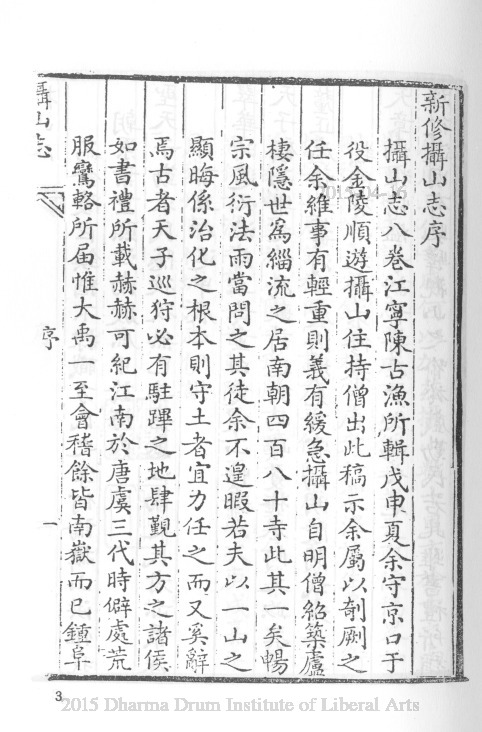 新修攝山志序
攝山志八卷江寧陳古漁所輯戊申夏余守京口于
役金陵順遊攝山住持僧出此稿示余屬以剞劂之
任余維事有輕重則義有緩急攝山自明僧紹築廬
棲隱世為緇流之居南朝四百八十寺此其一矣暢
宗風衍法雨當問之其徒余不遑暇若夫以一山之
顯晦係治化之根本則守土者宜力任之而又奚辭
焉古者天子巡狩必有駐蹕之地肆覲其方之諸侯
如書禮所載赫赫可紀江南於唐虞三代時僻處荒
服鸞輅所届惟大禹一至會稽餘皆南嶽而已鍾阜
攝山志
序
一
3
2015 Dharma Drum Institute of Liberal Arts